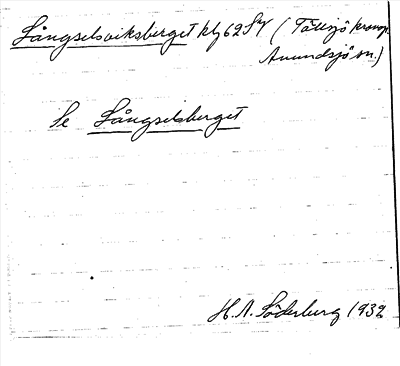 Långselsviksberget klj 62 SV (Tällsjö kronop.
Anundsjö sn.)
Se Långselsberget
H. A. Söderberg 1932